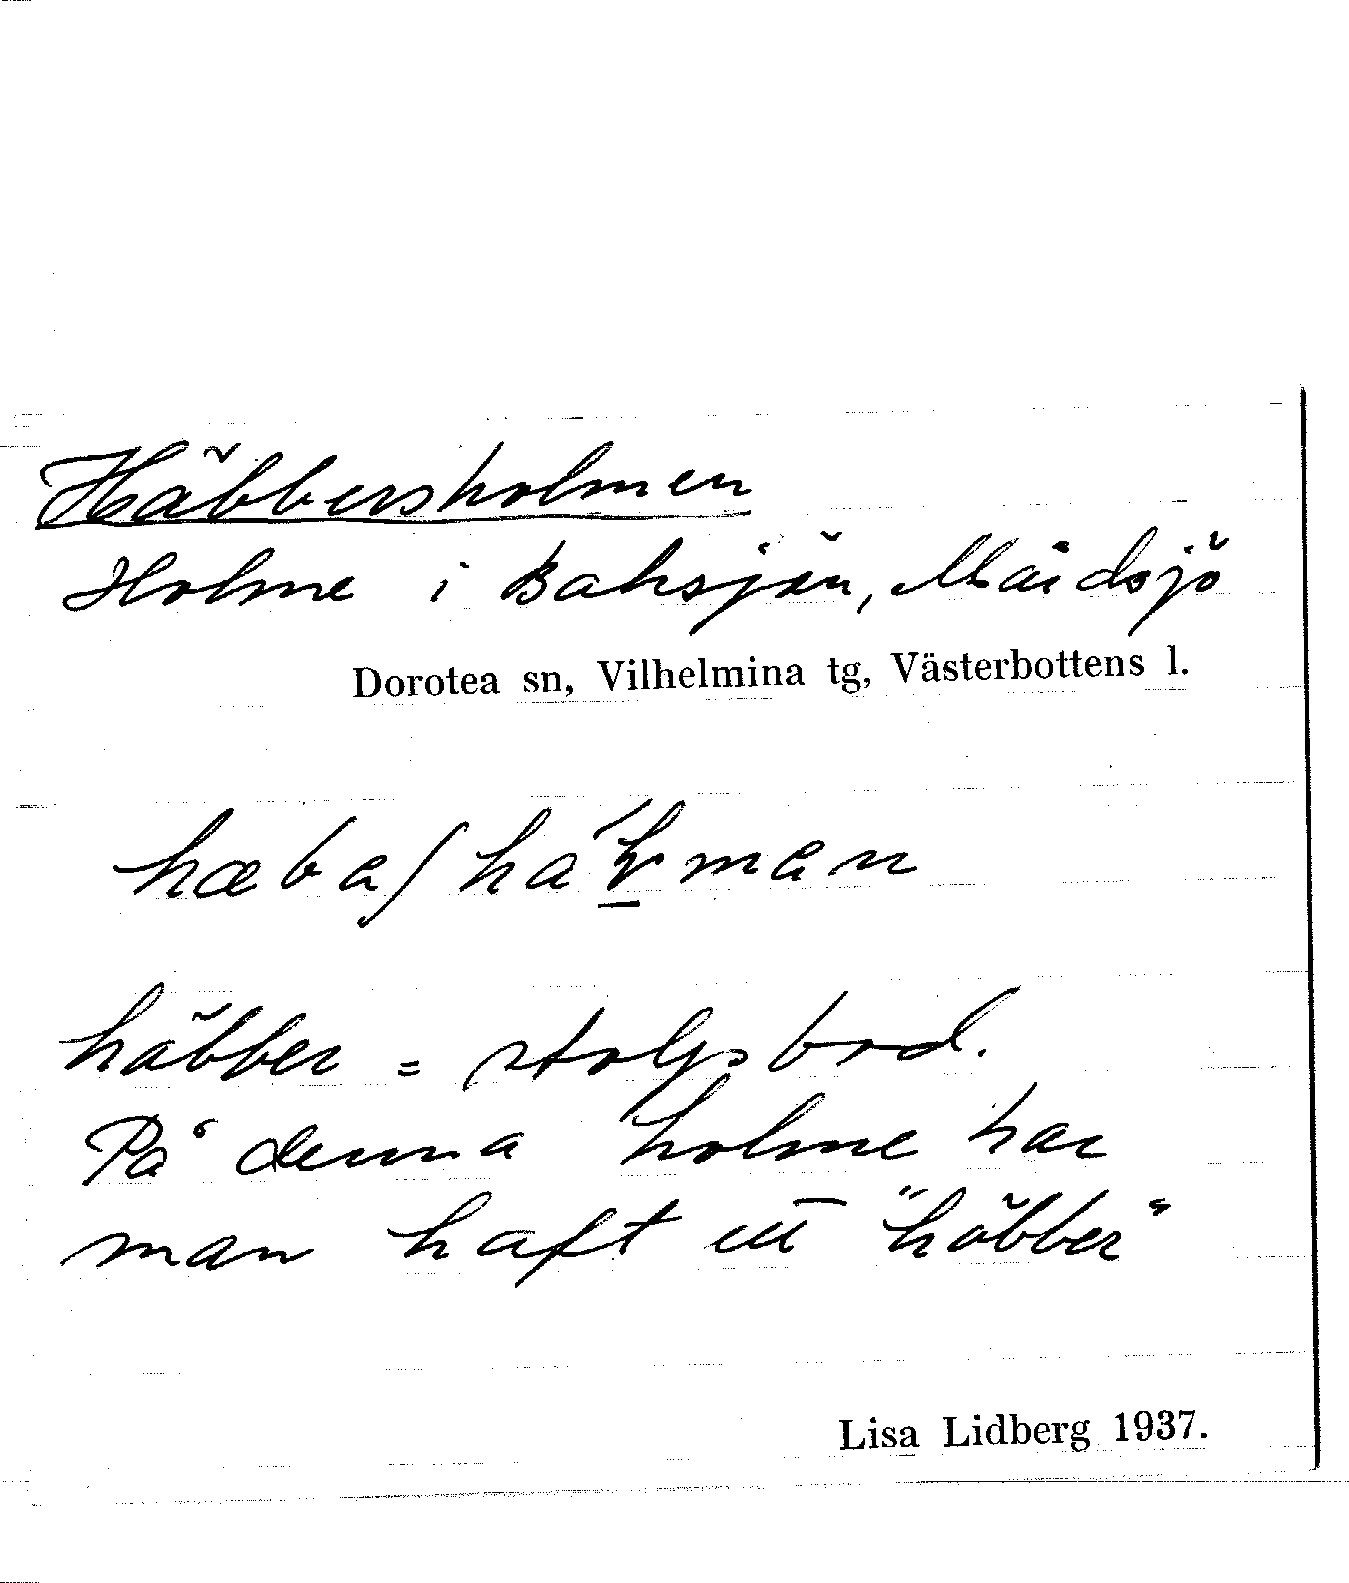 Häbbersholmen
Holme i Bahsjön, Måidsjö
Dorotea sn, Vilhelmina tg, Västerbottens l.
häbber = stolpbod.
På denna holme har
man haft ett "häbber"
Lisa Lidberg 1937.